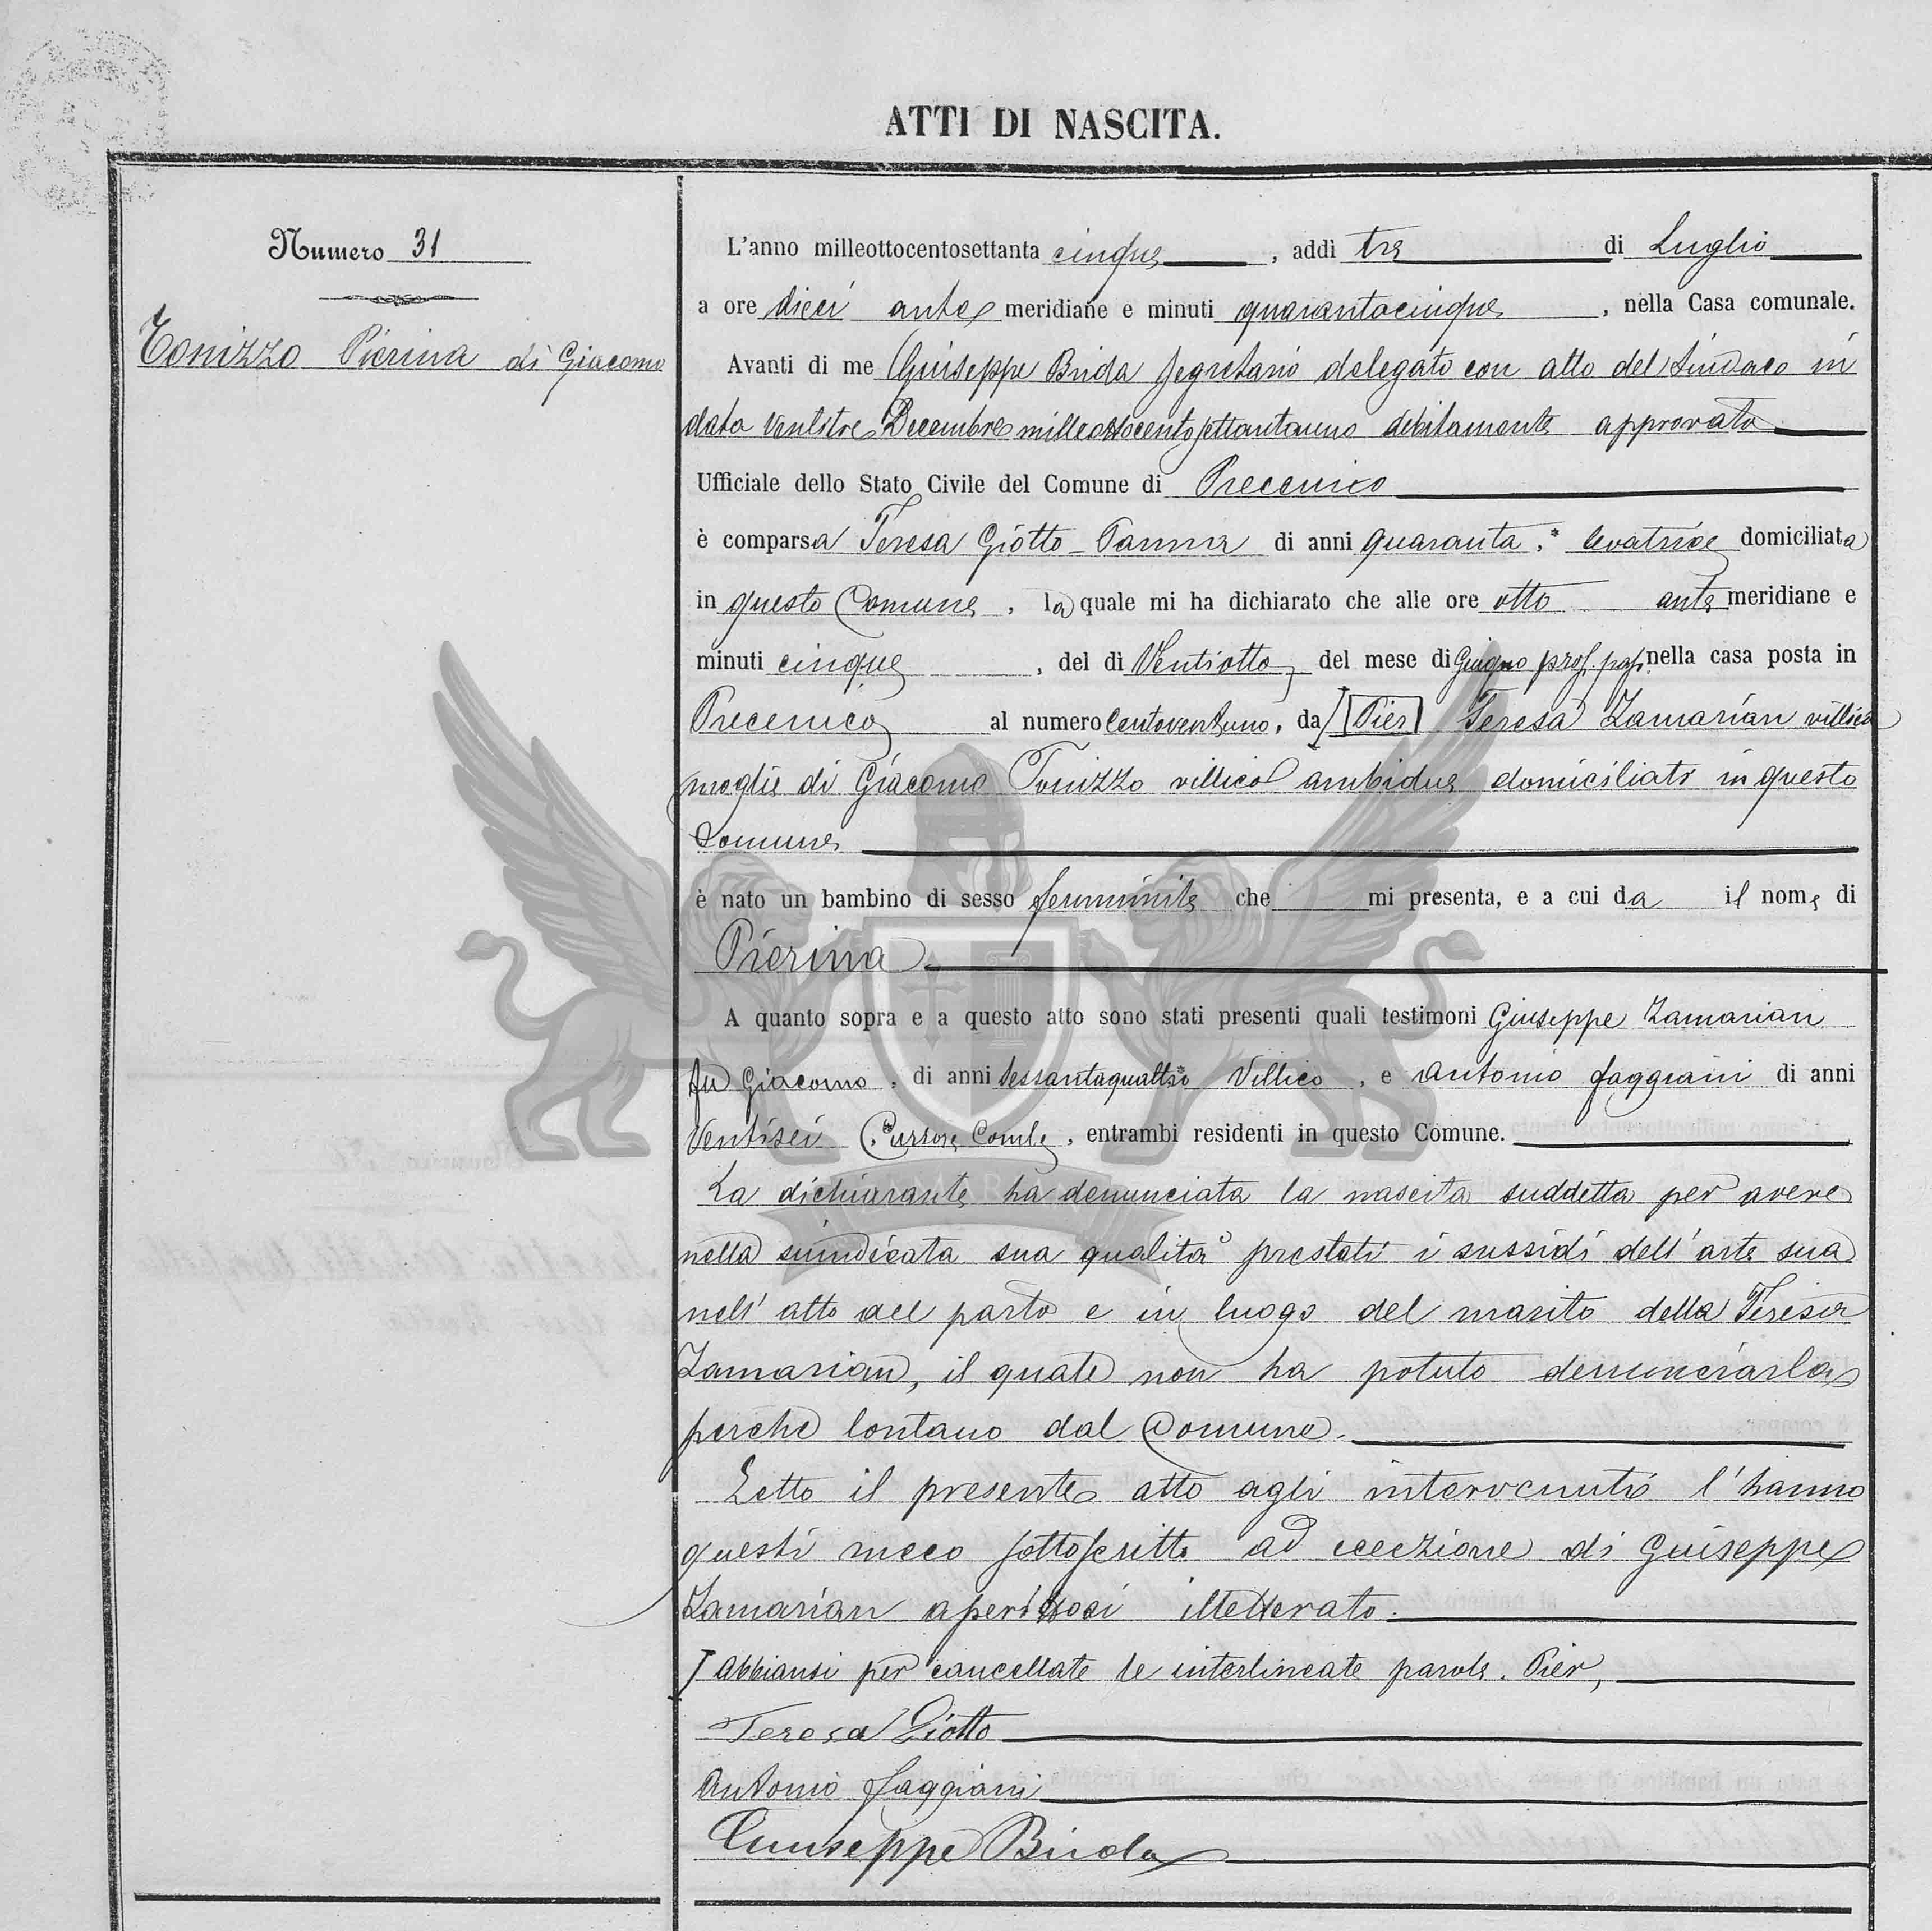 ATTI DI NASCITA.
Numero 31
Tonizzo Pierina di Giacomo
L'anno milleottocentosettanta cinque, addì tre di Luglio
a ore dieci ante meridiane e minuti quarantacinque, nella Casa comunale.
Avanti di me Giuseppe Brida Segretario delegato con atto del Sindaco in
data ventitre Decembre milleottocentosettantauno debitamente approvato
Ufficiale dello Stato Civile del Comune di Precenico
è comparsa Teresa Giotto-Panna di anni quaranta, levatrice domiciliata
in questo Comune, la quale mi ha dichiarato che alle ore otto ante meridiane e
minuti cinque, del dì Ventiotto del mese di Giugno pros. pas. nella casa posta in
Precenico al numero centoventuno, da [Pier] Teresa Zamarian villica
moglie di Giacomo Tonizzo villico ambidue domiciliati in questo
Comune
è nato un bambino di sesso femminile che mi presenta, e a cui da il nome di
Pierina.
A quanto sopra e a questo atto sono stati presenti quali testimoni Giuseppe Zamarian
fu Giacomo, di anni sessantaquattro Villico, e Antonio Faggiani di anni
Ventisei, Cursore Comle, entrambi residenti in questo Comune.
La dichiarante ha denunciata la nascita suddetta per avere
nella suindicata sua qualità prestati i sussidi dell'arte sua
nell'atto del parto e in luogo del marito della Teresa
Zamarian, il quale non ha potuto denunciarla
perche lontano dal Comune.
Letto il presente atto agli intervenuti l'hanno
questi meco sottoscritto ad ecezione di Giuseppe
Zamarian illetterato.
Abbiansi per cancellate le interlineate parole. Pier,
Teresa Giotto
Antonio Faggiani
Giuseppe Brida